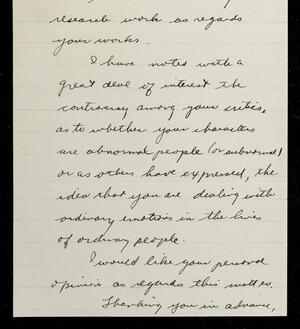 research work as regards
your works.
I have noted with a
great deal of interest the
controversy among your critics,
as to whether your characters
are abnormal people (or subnormal)
or as others have expressed, the
idea that you are dealing with
ordinary emotions in the lives
of ordinary people.
I would like your personal
opinion as regards this matter.
Thanking you in advance,